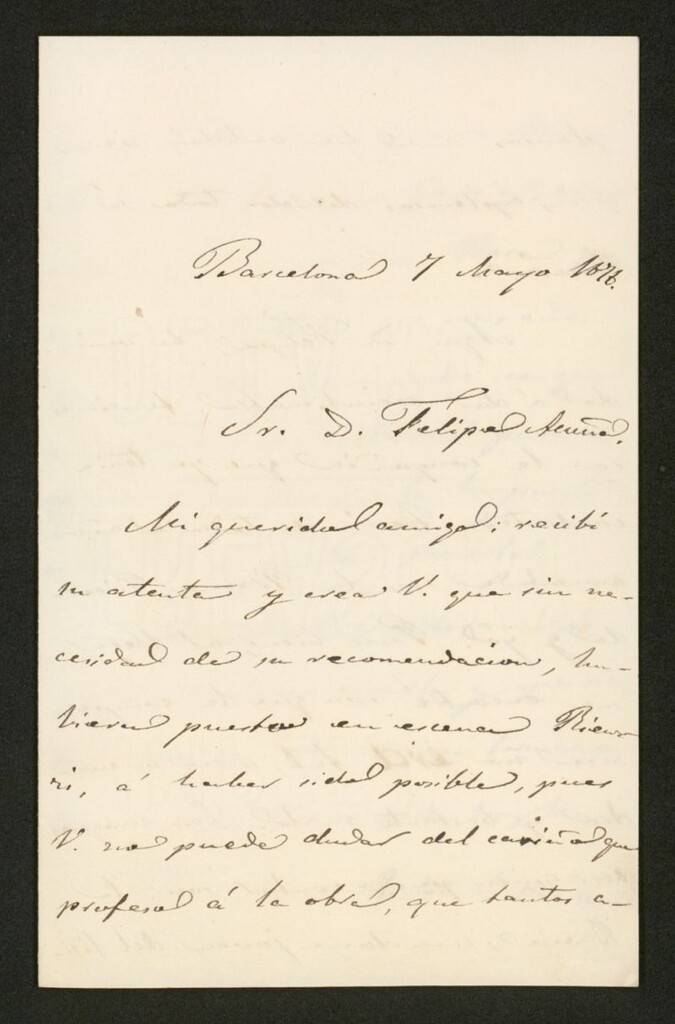 Barcelona 7 Mayo 1878.
Sr. D. Felipe Acuña.
Mi querido amigo; recibí
su atenta y crea V. que sin ne-
cesidad de su recomendacion, hu-
biera puesto en escena
á haber sido posible, pues
V. no puede dudar del cariño que
profeso á la obra, que tantos a-